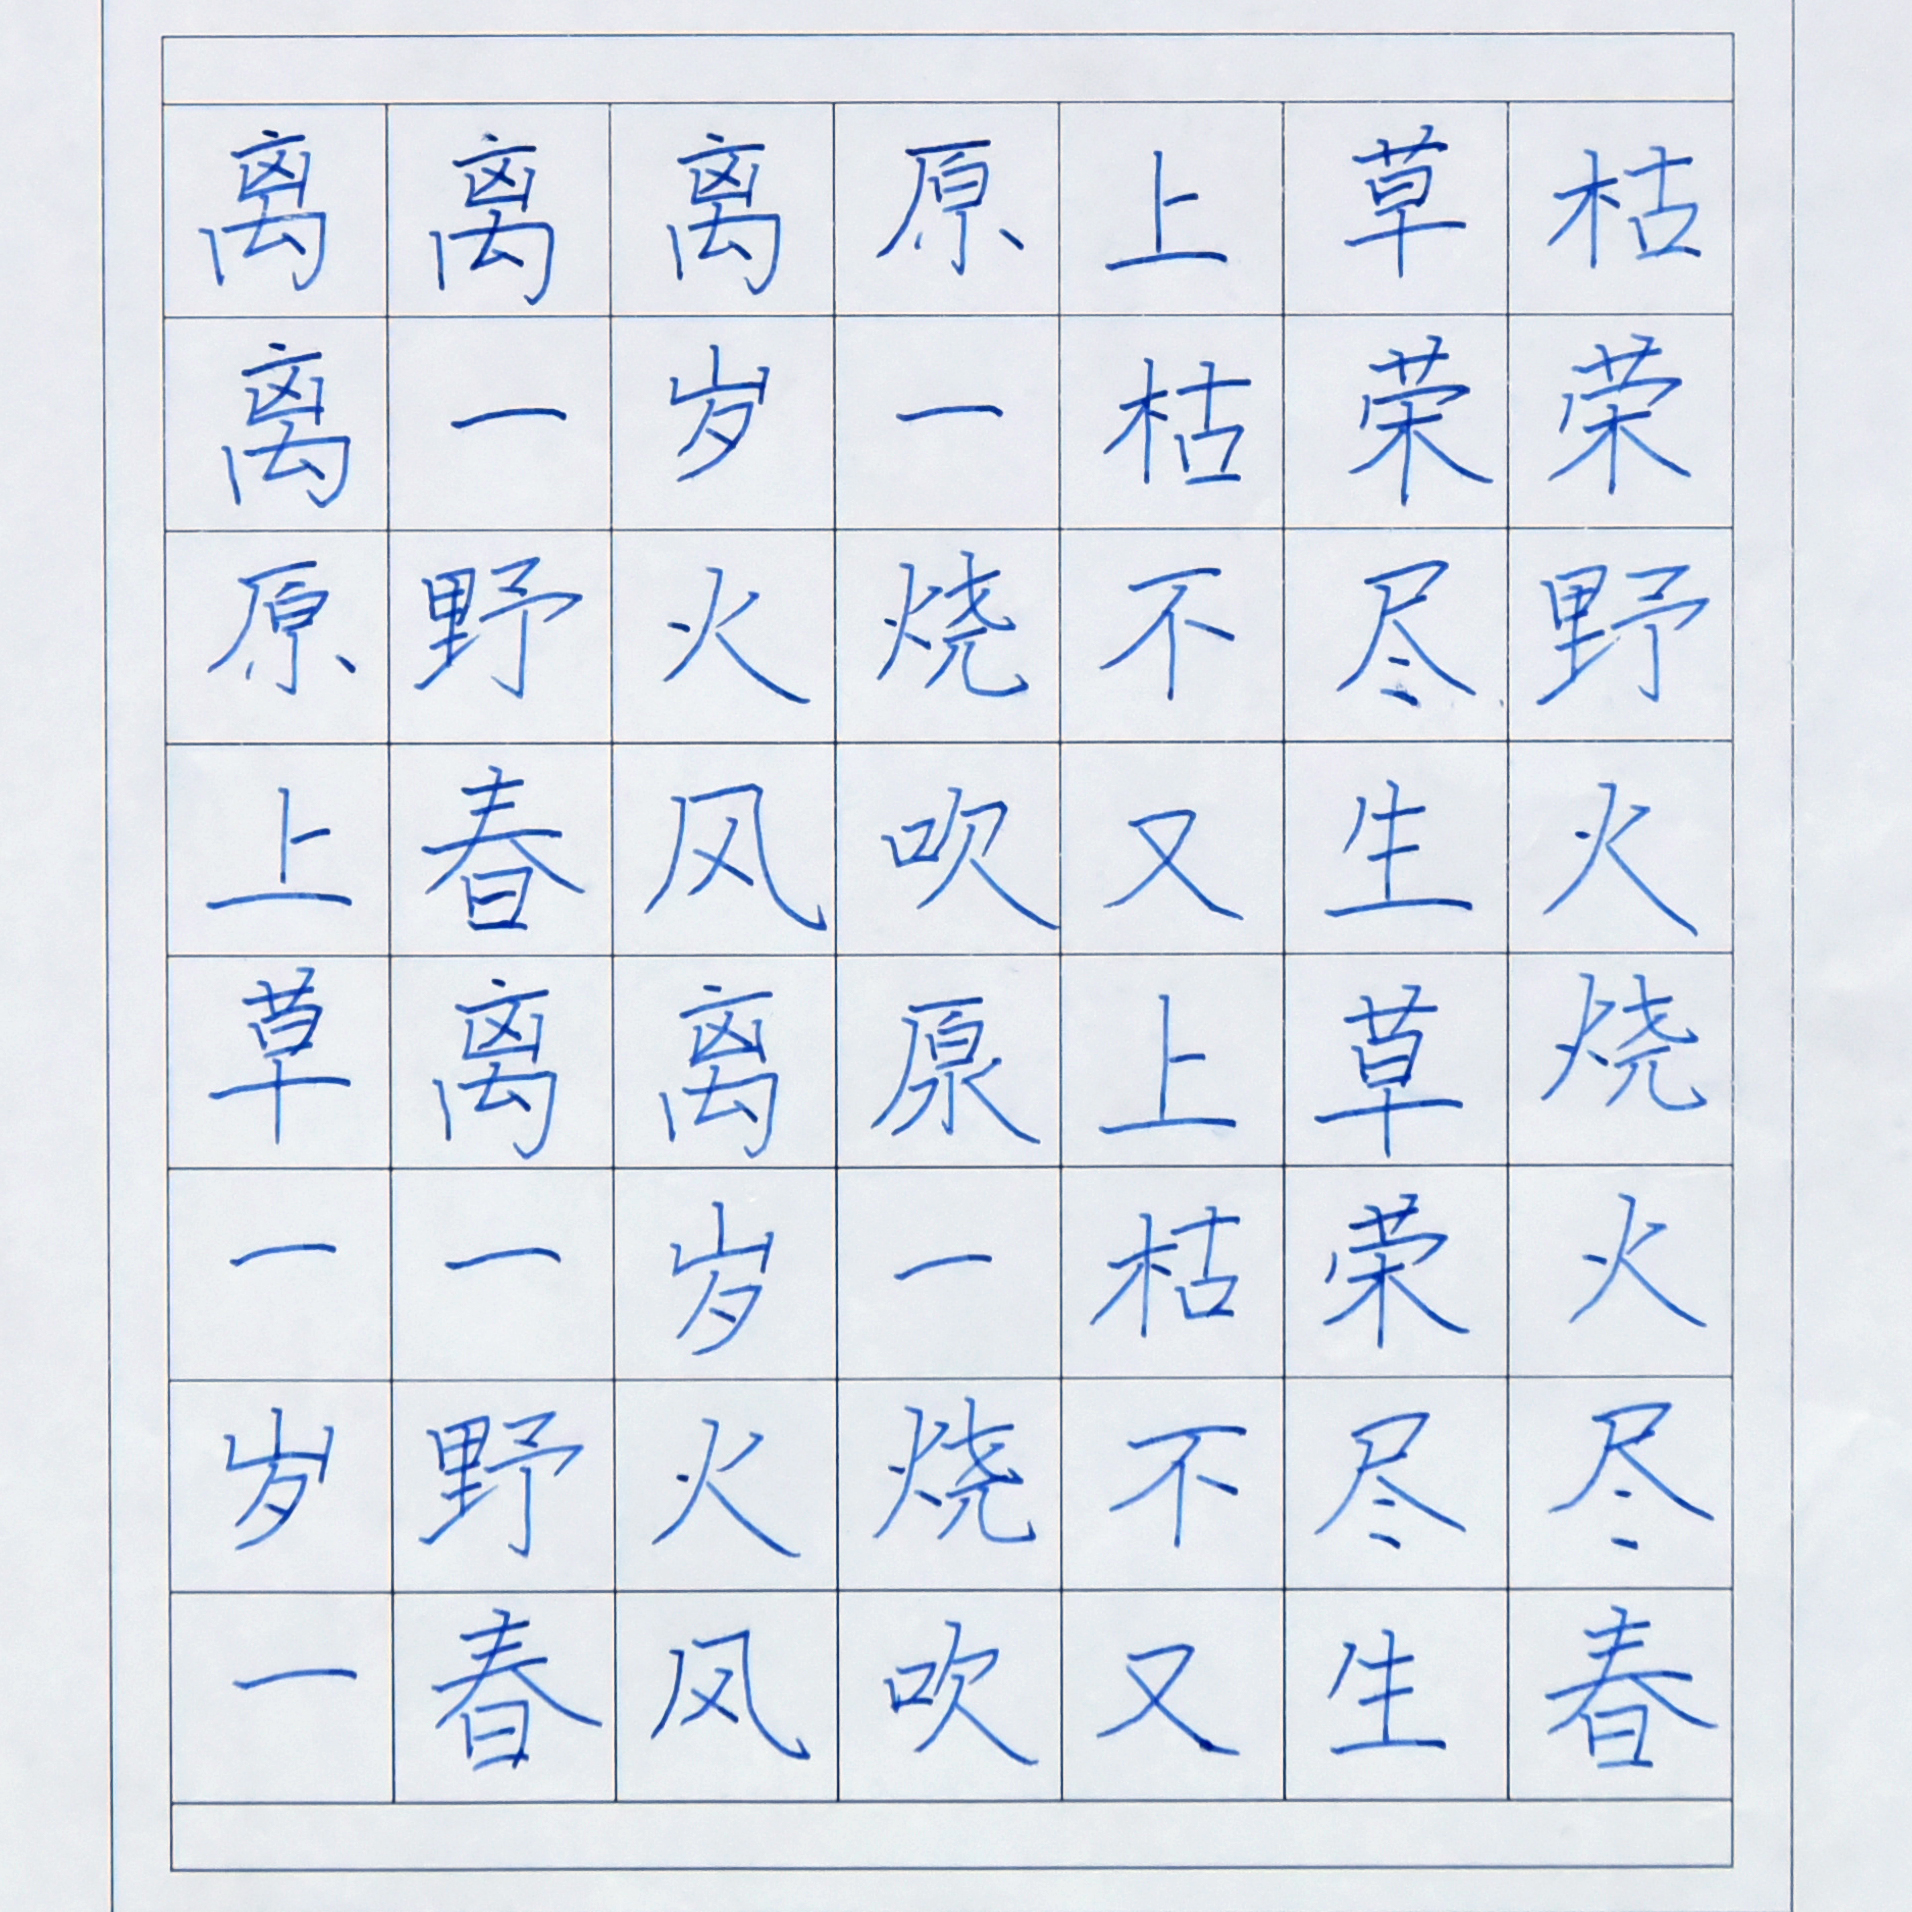 离离离原上草枯
离一岁一枯荣荣
原野火烧不尽野
上春风吹又生火
草离离原上草烧
一一岁一枯荣火
岁野火烧不尽尽
一春风吹又生春